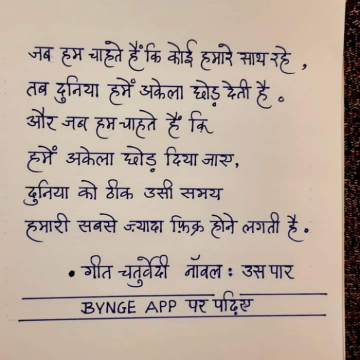 जब हम चाहते हैं कि कोई हमारे साथ रहे ,
तब दुनिया हमें अकेला छोड़ देती है .
और जब हम चाहते हैं कि
हमें अकेला छोड़ दिया जाए,
दुनिया को ठीक उसी समय
हमारी सबसे ज़्यादा फ़िक्र होने लगती है .
• गीत चतुर्वेदी नॉवल : उस पार
BYNGE APP पर पढ़िए